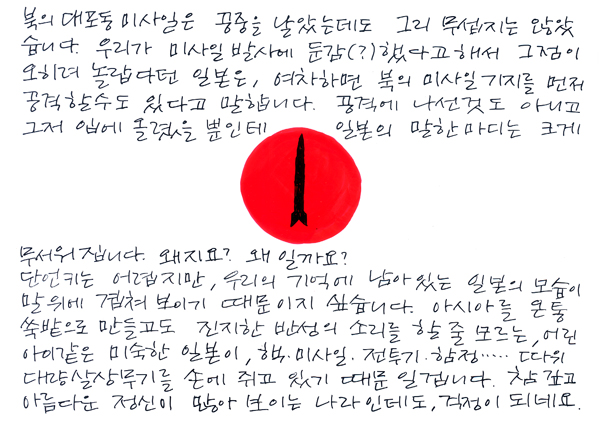 북의 대포동 미사일은 공중을 날았는데도 그리 무섭지는 않았
습니다. 우리가 미사일 발사에 둔감(?)했다고 해서 그 점이
오히려 놀랍다던 일본은, 여차하면 북의 미사일 기지를 먼저
공격할 수도 있다고 말합니다. 공격에 나선것도 아니고
그저 입에 올렸을 뿐인데 일본의 말 한마디는 크게
무서워집니다. 왜지요? 왜일까요?
단언키는 어렵지만, 우리의 기억에 남아있는 일본의 모습이
말 위에 겹쳐 보이기 때문이지 싶습니다. 아시아를 온통
쑥밭으로 만들고도 진지한 반성의 소리를 할 줄 모르는, 어린
아이같은 미숙한 일본이, 핵·미사일·전투기·함정····· 따위
대량살상무기를 손에 쥐고 있기 때문일겁니다. 참 깊고
아름다운 정신이 많아 보이는 나라인데도, 걱정이 되네요.